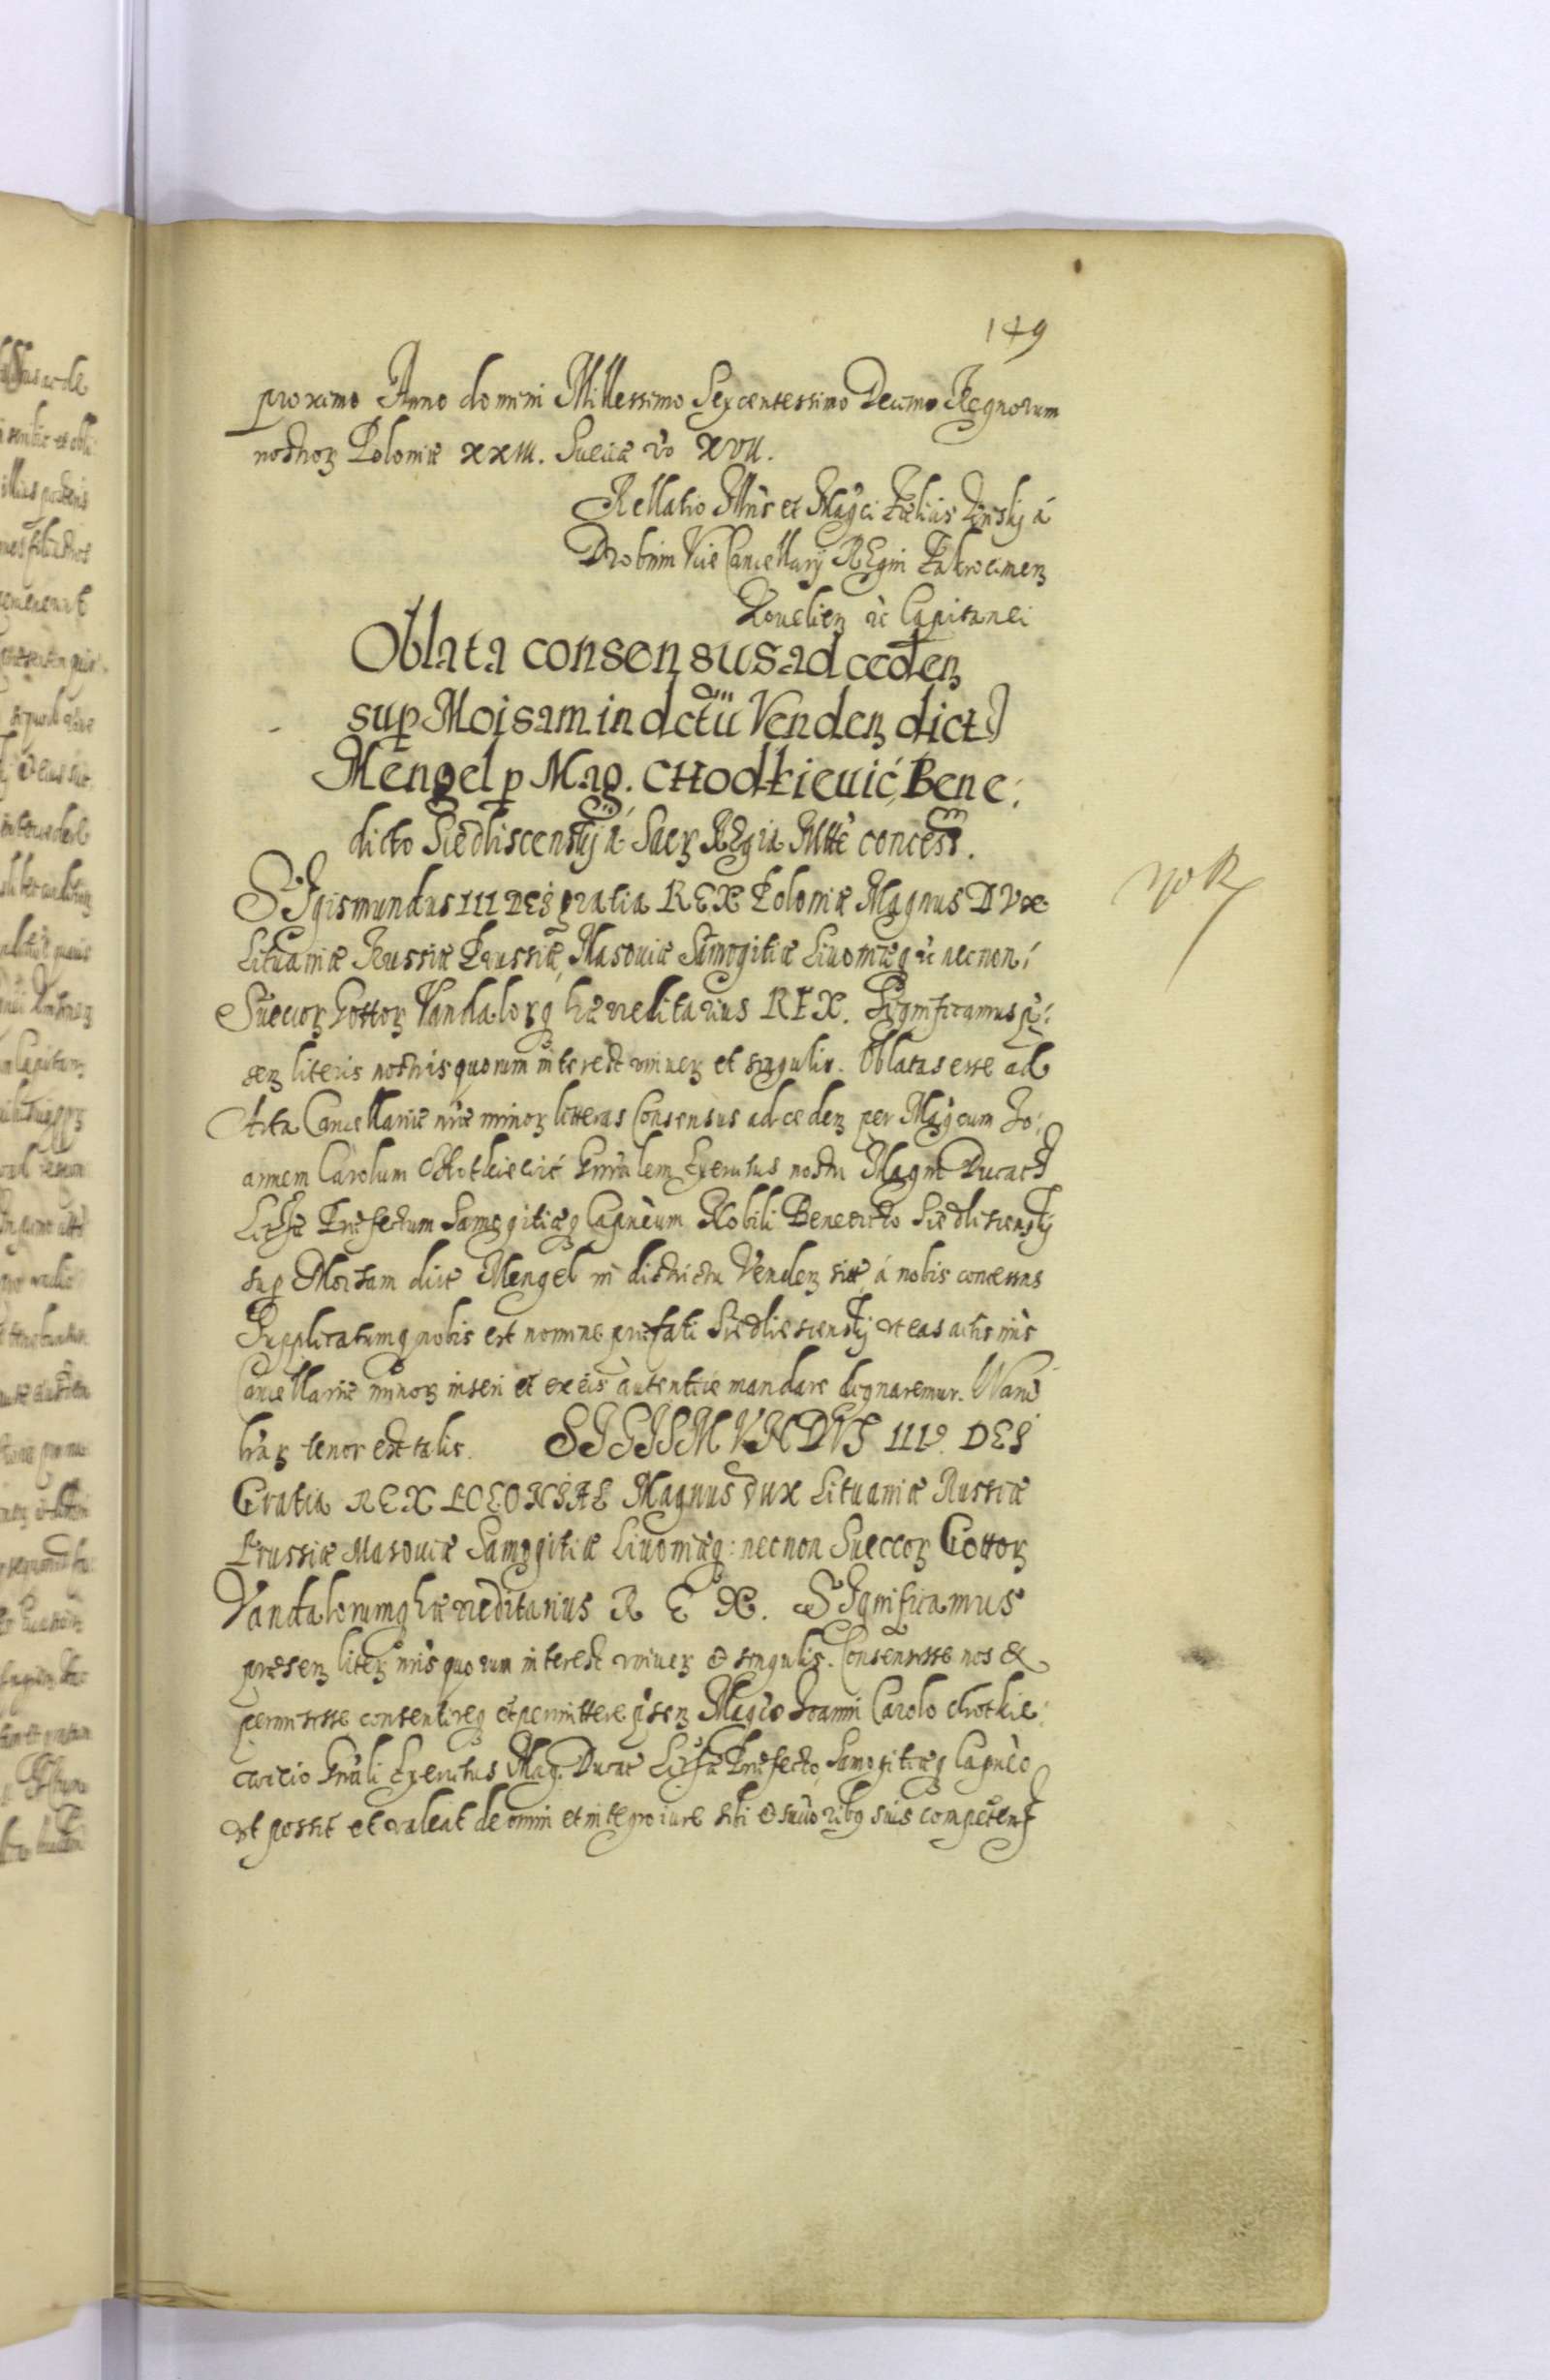 149
proximo Anno domini Millessimo Sexcentessimo Decimo Regnorum
nostroꝝ Poloniæ XXIII. Sueciæ vo XVII.
Rellatio Illris et Magci Fœlicis Krisky á
Drobnin Vice Cancellarij REgni
Capitanei
Oblata consensus ad cedeń
sup Moisam in dctũ Venden dict
Mengel p Mag. CHodkieuić Bene:
dicto Siedliscensky á Sacꝝ REgia Mtte concess.
SIgismundus III DEI gratia REX Poloniæ Magnus DVx
Lituaniæ Russiæ Prussiæ Masouiæ Samogitiæ Liuoniæq ꝛc necnon
Suecoꝝ Gottoꝝ Vandaloꝝq hæreditarius REX. Significamus p:
sen literis nostris quorum interest vniuer et singulis. Oblatas esse ad
Acta Cancellariæ nræ minoꝝ litteras Consensus ad ceden per Magcum Jo:
annem Carolum CHotkieuić Gnralem Exercitus nostri Magni Ducat
Lithæ Præfectum Samogitiæq Capneum Nobili Benedicto Siedlisciensky
sup Moisam dict Mengel in districtu Venden sitt á nobis concessas
Supplicatumq nobis est nomine præfati Siedlisciensky vt eas actis nris
Cancellariæ minoꝝ inseri et ex eis autentice mandare dignaremur.
lraꝝ tenor est talis. SIGISMVNDVS III. DEI
Gratia REX POLONIAE Magnus Dux Lituaniæ Russiæ
Prussiæ Masouiæ Samogitiæ Liuoniæq: necnon Suecoꝝ Gottoꝝ
Vandalorumq hæreditarius REX. SIgnificamus
præsen liter nris quorum interest vniuer & singulis. Consensisse nos &
permisisse consentireq et permittere psen Magco Joanni Carolo Chotkie:
wicio Gnrali Exercitus Mag. Ducat Lithæ Præfecto, Samogitiæq Capneo
vt possit et valeat de omni et integro iure sibi & suis competen